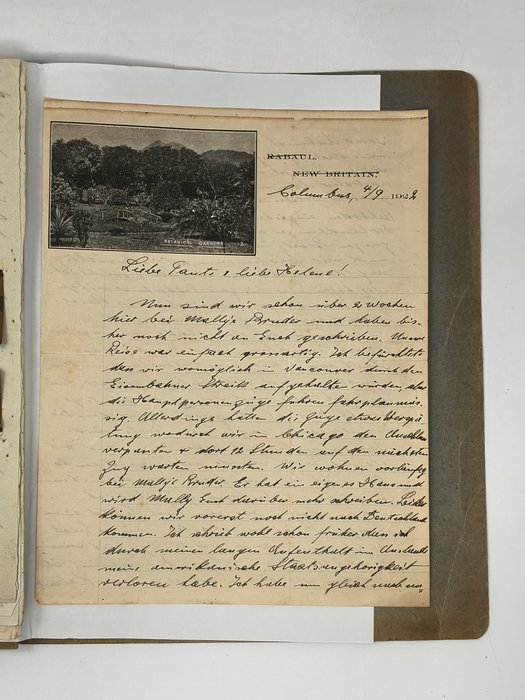 RABAUL.
NEW BRITAIN.
Columbus, 4/9 1922
BOTANICAL GARDENS
Liebe Tante & liebe Helene!
Nun sind wir schon über 2 Wochen
hier bei Mally's Bruder und haben bis-
her noch nicht an Euch geschrieben. Unsere
Reise war einfach grossartig. Ich befürchtete
dass wir womöglich in Vancouver durch den
Eisenbahner Streik aufgehalten würden, aber
die Hauptpersonenzüge fuhren fahrplanmäs-
sig. Allerdings hatten die Züge etwas Verspä-
tung wodurch wir in Chicago den Anschluss
verpassten & dort 12 Stunden auf den nächsten
Zug warten mussten. Wir wohnen vorläufig
bei Mally's Bruder. Er hat ein eigenes Haus und
wird Mally Euch darüber mehr schreiben. Leider
können wir vorerst noch nicht nach Deutschland
kommen. Ich schrieb wohl schon früher dass ich
durch meinen langen Aufenthalt im Auslande
meine amerikanische Staatsangehörigkeit
verloren habe. Ich habe nun gleich nach